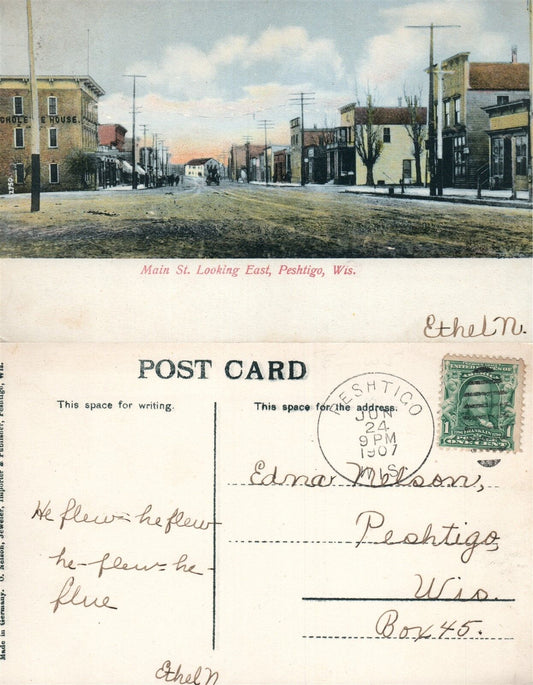 CHOLETTE HOUSE.
Main St. Looking East, Peshtigo, Wis.
Ethel N.
POST CARD
This space for writing.
This space for the address.
PESHTIGO
JUN
24
9 PM
1907
WIS.
1 FRANKLIN 1
ONE CENT
Edna Nelson,
Peshtigo,
Wis.
Box 45.
He flew = he flew
he - flew = he -
flue
Ethel N
Made in Germany. O. Nelson, Jeweler, Importer & Publisher, Peshtigo, Wis.